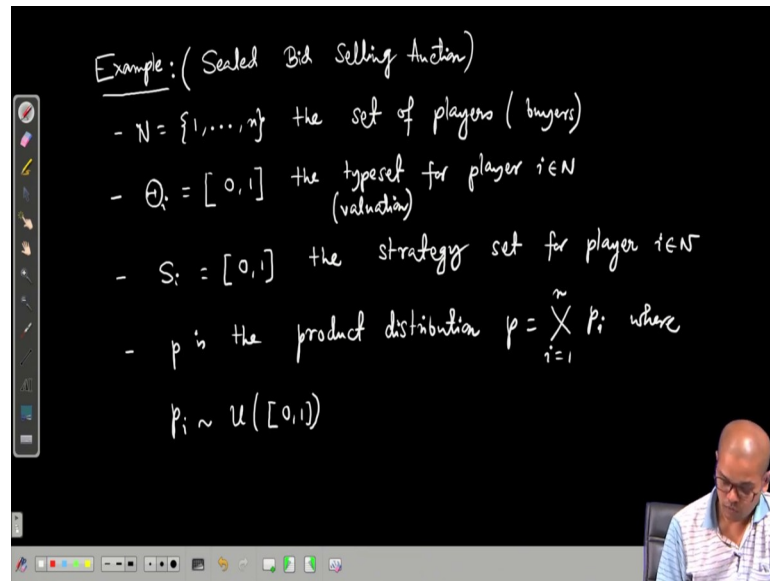 Example: (Sealed Bid Selling Auction)
- N = {1,..., n} the set of players (buyers)
- Θᵢ = [0,1] the typeset for player i∈N
(valuation)
- Sᵢ = [0,1] the strategy set for player i∈N
- p is the product distribution p = ⨉ᵢ₌₁ⁿ pᵢ where
pᵢ ~ U([0,1])